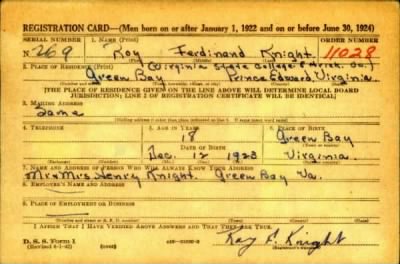 REGISTRATION CARD—(Men born on or after January 1, 1922 and on or before June 30, 1924)
SERIAL NUMBER 1. NAME (Print) ORDER NUMBER
N. 269 Roy Ferdinand Knight 11028
(First) (Middle) (Last)
2. PLACE OF RESIDENCE (Print) (Virginia State College
Green Bay Prince Edward, Virginia
[THE PLACE OF RESIDENCE GIVEN ON THE LINE ABOVE WILL DETERMINE LOCAL BOARD
JURISDICTION; LINE 2 OF REGISTRATION CERTIFICATE WILL BE IDENTICAL]
3. MAILING ADDRESS
Same
4. TELEPHONE 5. AGE IN YEARS
18 Green Bay
DATE OF BIRTH
Dec. 12 1923 Virginia
7. NAME AND ADDRESS OF PERSON WHO WILL ALWAYS KNOW YOUR ADDRESS
Mr & Mrs. Henry Knight. Green Bay Va.
8. EMPLOYER'S NAME AND ADDRESS
9. PLACE OF EMPLOYMENT OR BUSINESS
I AFFIRM THAT I HAVE VERIFIED ABOVE ANSWERS AND THAT THEY ARE TRUE.
D. S. S. Form 1
Roy F. Knight